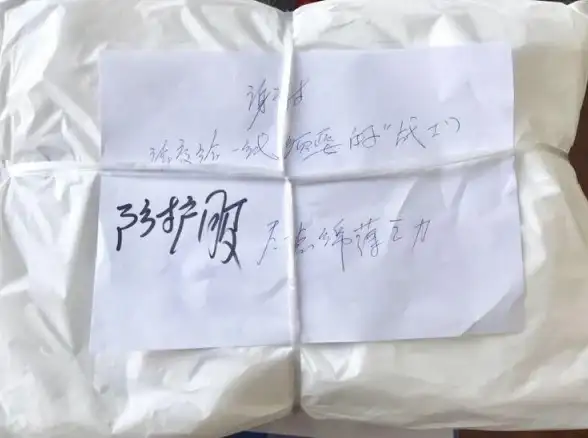 谢谢
请交给一线须要的"战士"
防护服 尽一点绵薄之力